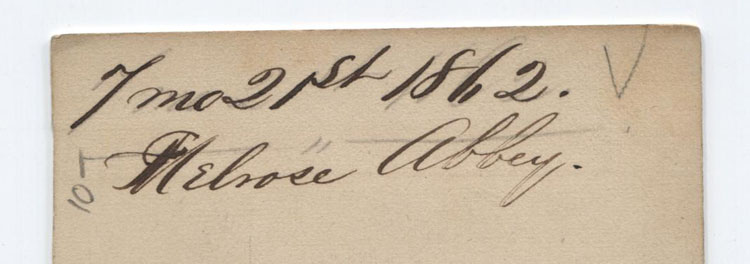 7 mo 21st 1862.
Melrose Abbey.
10T